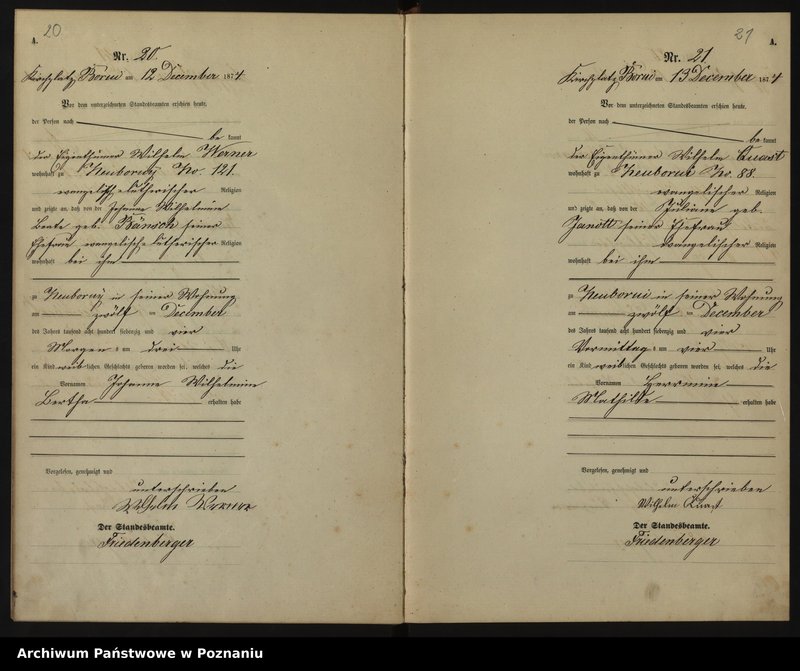 20
A.
Nr. 20.
Kirchplatz Borui am 12 December 1874
Vor dem unterzeichneten Standesbeamten erschien heute,
der Person nach
be kannt
der Eigenthümer Wilhelm Werner
wohnhaft zu Neuboruy No. 121.
evangelisch lutherischer Religion
und zeigte an, daß von der Johanne Wilhelmine
Beate geb. Bänsch seiner
Ehefrau evangelische lutherischer Religion
wohnhaft bei ihm
zu Neuboruy in seiner Wohnung
am zwölf ten December
des Jahres tausend acht hundert siebenzig und vier
Morgens um drei Uhr
ein Kind weiblichen Geschlechts geboren worden sei, welches die
Vornamen Johanne Wilhelmine
Bertha erhalten habe
Vorgelesen, genehmigt und
unterschrieben
Wilhelm Werner
Der Standesbeamte.
Friedenberger
21
A.
Nr. 21
Kirchplatz Borui am 13 December 1874
Vor dem unterzeichneten Standesbeamten erschien heute,
der Person nach
be kannt
der Eigenthümer Wilhelm Quast
wohnhaft zu Neuborui No. 88.
evangelischer Religion
und zeigte an, daß von der Juliane geb.
Janott seiner Ehefrau
evangelischer Religion
wohnhaft bei ihm
zu Neuborui in seiner Wohnung
am zwölf ten December
des Jahres tausend acht hundert siebenzig und vier
Vormittag s um vier Uhr
ein Kind weiblichen Geschlechts geboren worden sei, welches die
Vornamen Herrmine
Mathilde erhalten habe
Vorgelesen, genehmigt und
unterschrieben
Wilhelm Quast
Der Standesbeamte.
Friedenberger
Archiwum Państwowe w Poznaniu